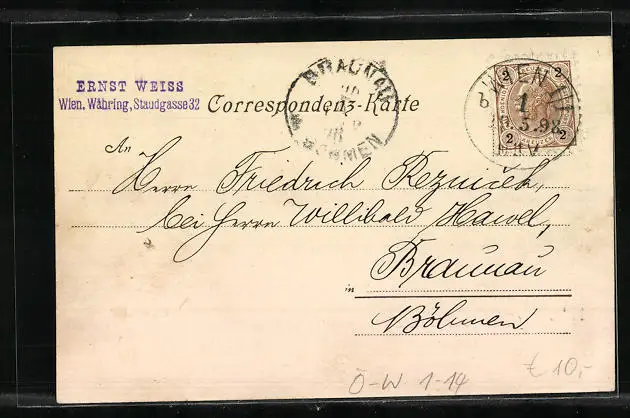 ERNST WEISS
Wien, Währing, Staudgasse 32
Correspondenz-Karte
BRAUNAU
98
BÖHMEN
WIEN
1
5.98
2 2
2 2
An
Herrn Friedrich Rezniček,
bei Herrn Willibald Hawel,
Braunau
in
Böhmen
Ö-W 1-14
€ 10,-